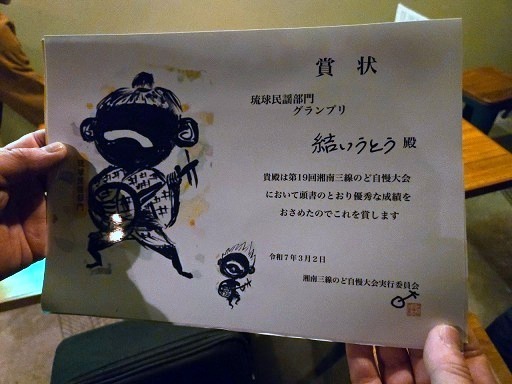 賞状
琉球民謡部門
グランプリ
結いうとう 殿
貴殿は第19回湘南三線のど自慢大会
において頭書のとおり優秀な成績を
おさめたのでこれを賞します
令和7年3月2日
湘南三線のど自慢大会実行委員会